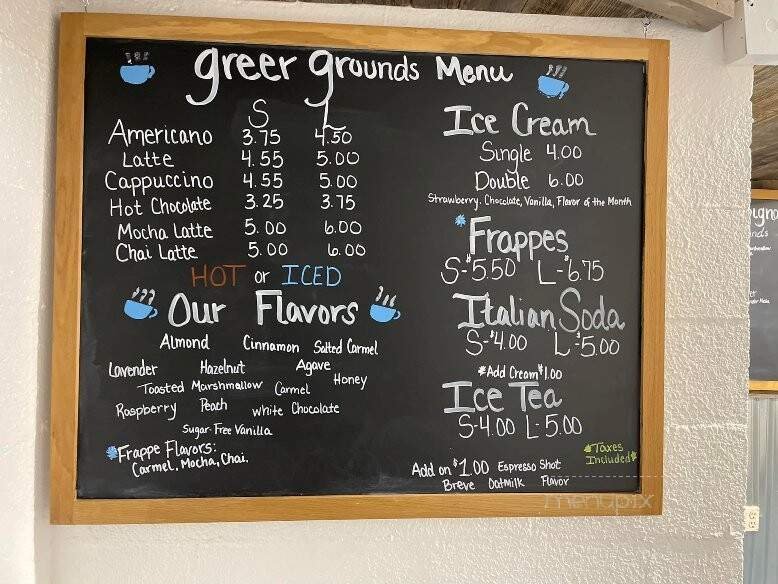 greer grounds Menu
S L
Americano 3.75 4.50
Latte 4.55 5.00
Cappuccino 4.55 5.00
Hot Chocolate 3.25 3.75
Mocha Latte 5.00 6.00
Chai Latte 5.00 6.00
HOT or ICED
Our Flavors
Almond Cinnamon Salted Carmel
Lavender Hazelnut Agave
Toasted Marshmallow Carmel Honey
Raspberry Peach White Chocolate
Sugar-Free Vanilla
*Frappe Flavors:
Carmel, Mocha, Chai.
Ice Cream
Single 4.00
Double 6.00
Strawberry, Chocolate, Vanilla, Flavor of the Month
*Frappes
S-$5.50 L-$6.75
Italian Soda
S-$4.00 L-$5.00
*Add Cream $1.00
Ice Tea
S-4.00 L-5.00
*Taxes
Included*
Add on $1.00 Espresso Shot
Breve Oatmilk Flavor
menupix